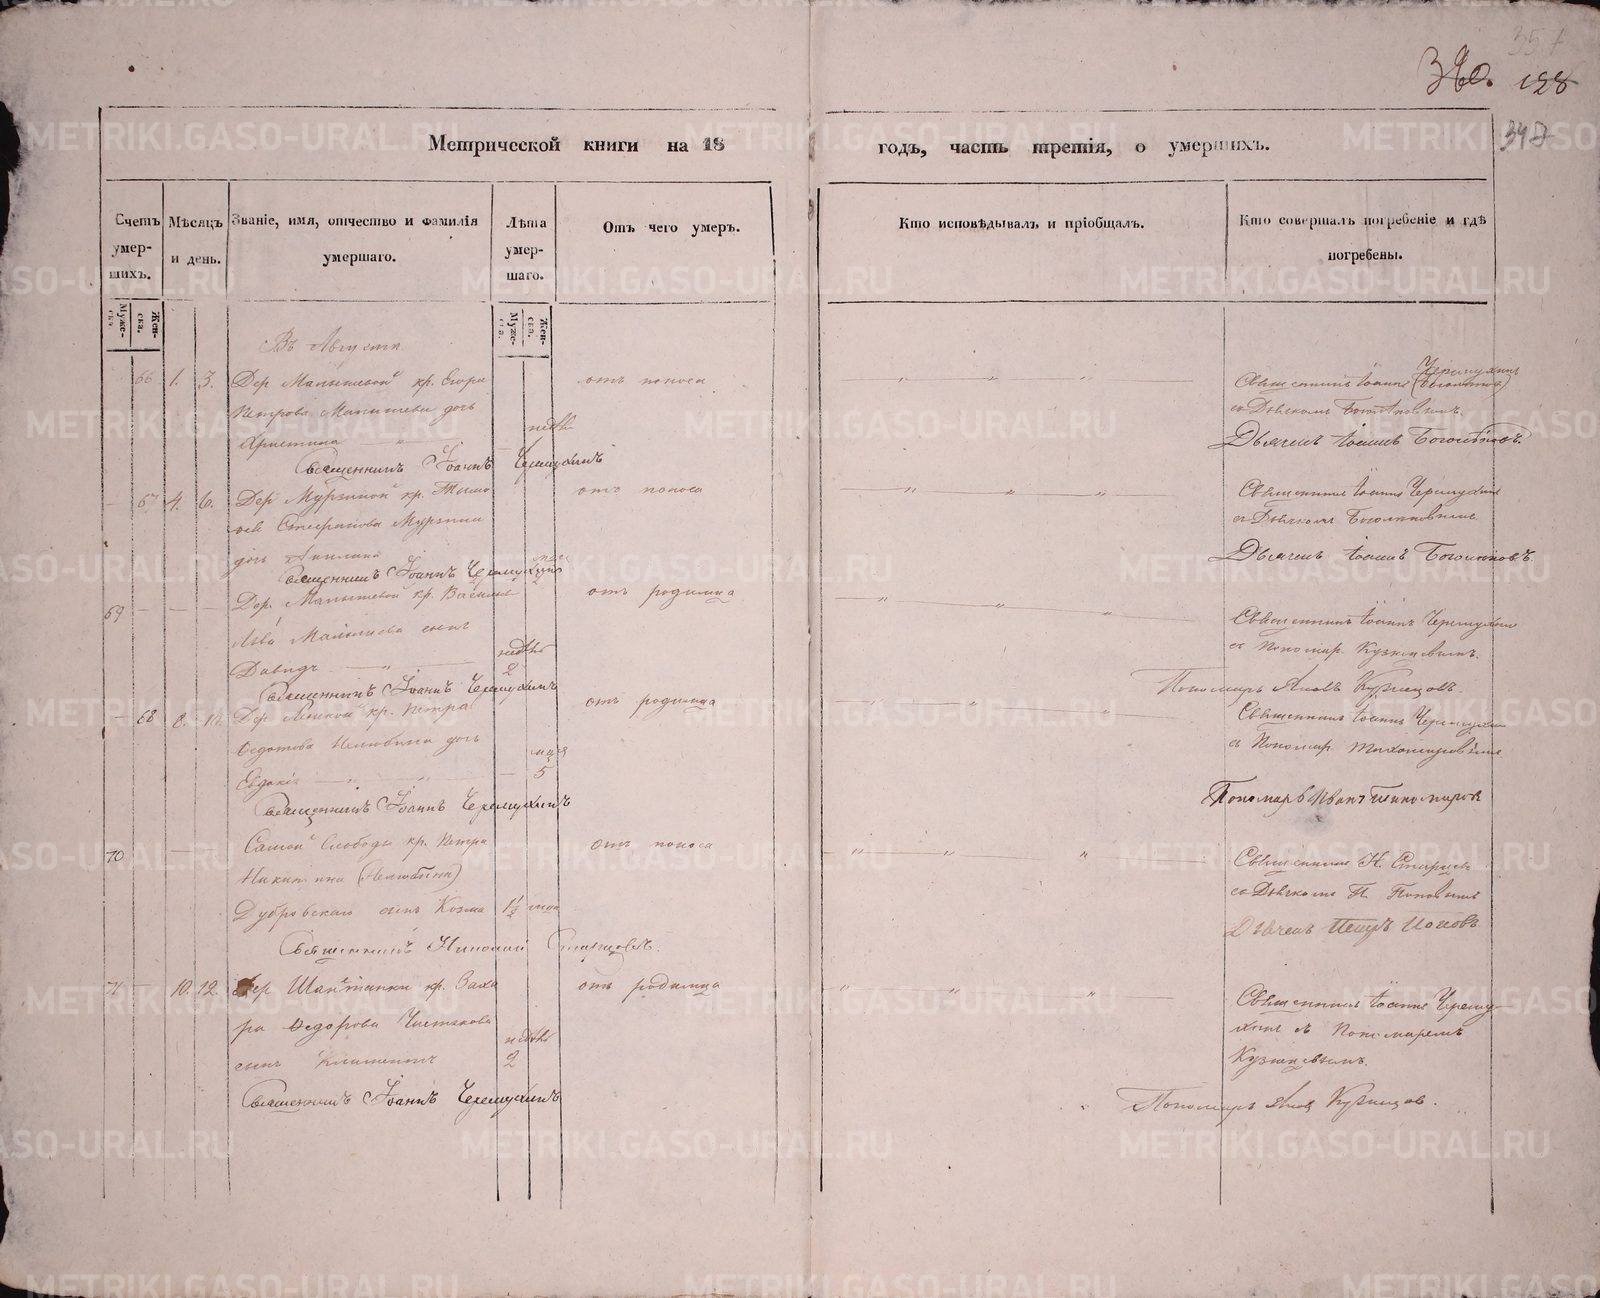 357
340. 128
347
Метрической книги на 18 годъ, часть третія, о умершихъ.
Счетъ умер- шихъ.
Мѣсяцъ и день.
Званіе, имя, отчество и фамилія умершаго.
Лѣта умер- шаго.
Отъ чего умеръ.
Кто исповѣдывалъ и пріобщалъ.
Кто совершалъ погребеніе и гдѣ погребены.
Муже- ска.
Жен- ска.
Муже- ска.
Жен- ска.
Въ Августѣ
66 1. 3. Дер. Малышевой кр. Егора отъ поноса Священникъ Іоаннъ Черемухинъ
Петрова Малышева дочь съ Дьячкомъ
Христина
Священникъ Іоаннъ Черемухинъ Дьячекъ
67 4. 6. Дер. Мурзиной кр. отъ поноса Священникъ Іоаннъ Черемухинъ
Стефанова Мурзина съ Дьячкомъ
дочь
Священникъ Іоаннъ Черемухинъ Дьячекъ
69 — — — Дер. Малышевой кр. Василія отъ родимца Священникъ Іоаннъ Черемухинъ
Малышева сынъ съ Пономар. Кузнецовымъ.
Давидъ 2
Священникъ Іоаннъ Черемухинъ Пономарь Яковъ Кузнецовъ.
— 68 8. 10. Дер. кр. Петра отъ родимца Священникъ Іоаннъ Черемухинъ
Ѳедотова Нелюбина дочь съ Пономар. Тихомировымъ
Евдокія 5
Священникъ Іоаннъ Черемухинъ Пономарь Иванъ Тихомировъ
70 — — Самой Слободы кр. Петра отъ поноса Священникъ Н. Старцевъ
Никитина (Нелюбина) съ Дьячкомъ П. Поповымъ
Дубровскаго сынъ Козма 1½ года
Священникъ Николай Старцевъ. Дьячекъ Петръ Поповъ
71 — 10. 12. Дер. Шайтанки кр. Заха отъ родимца Священникъ Іоаннъ Черему-
ра Ѳедорова Чистякова хинъ съ Пономаремъ
сынъ Климентъ 2 Кузнецовымъ.
Священникъ Іоаннъ Черемухинъ Пономарь Яковъ Кузнецовъ.
METRIKI.GASO-URAL.RU